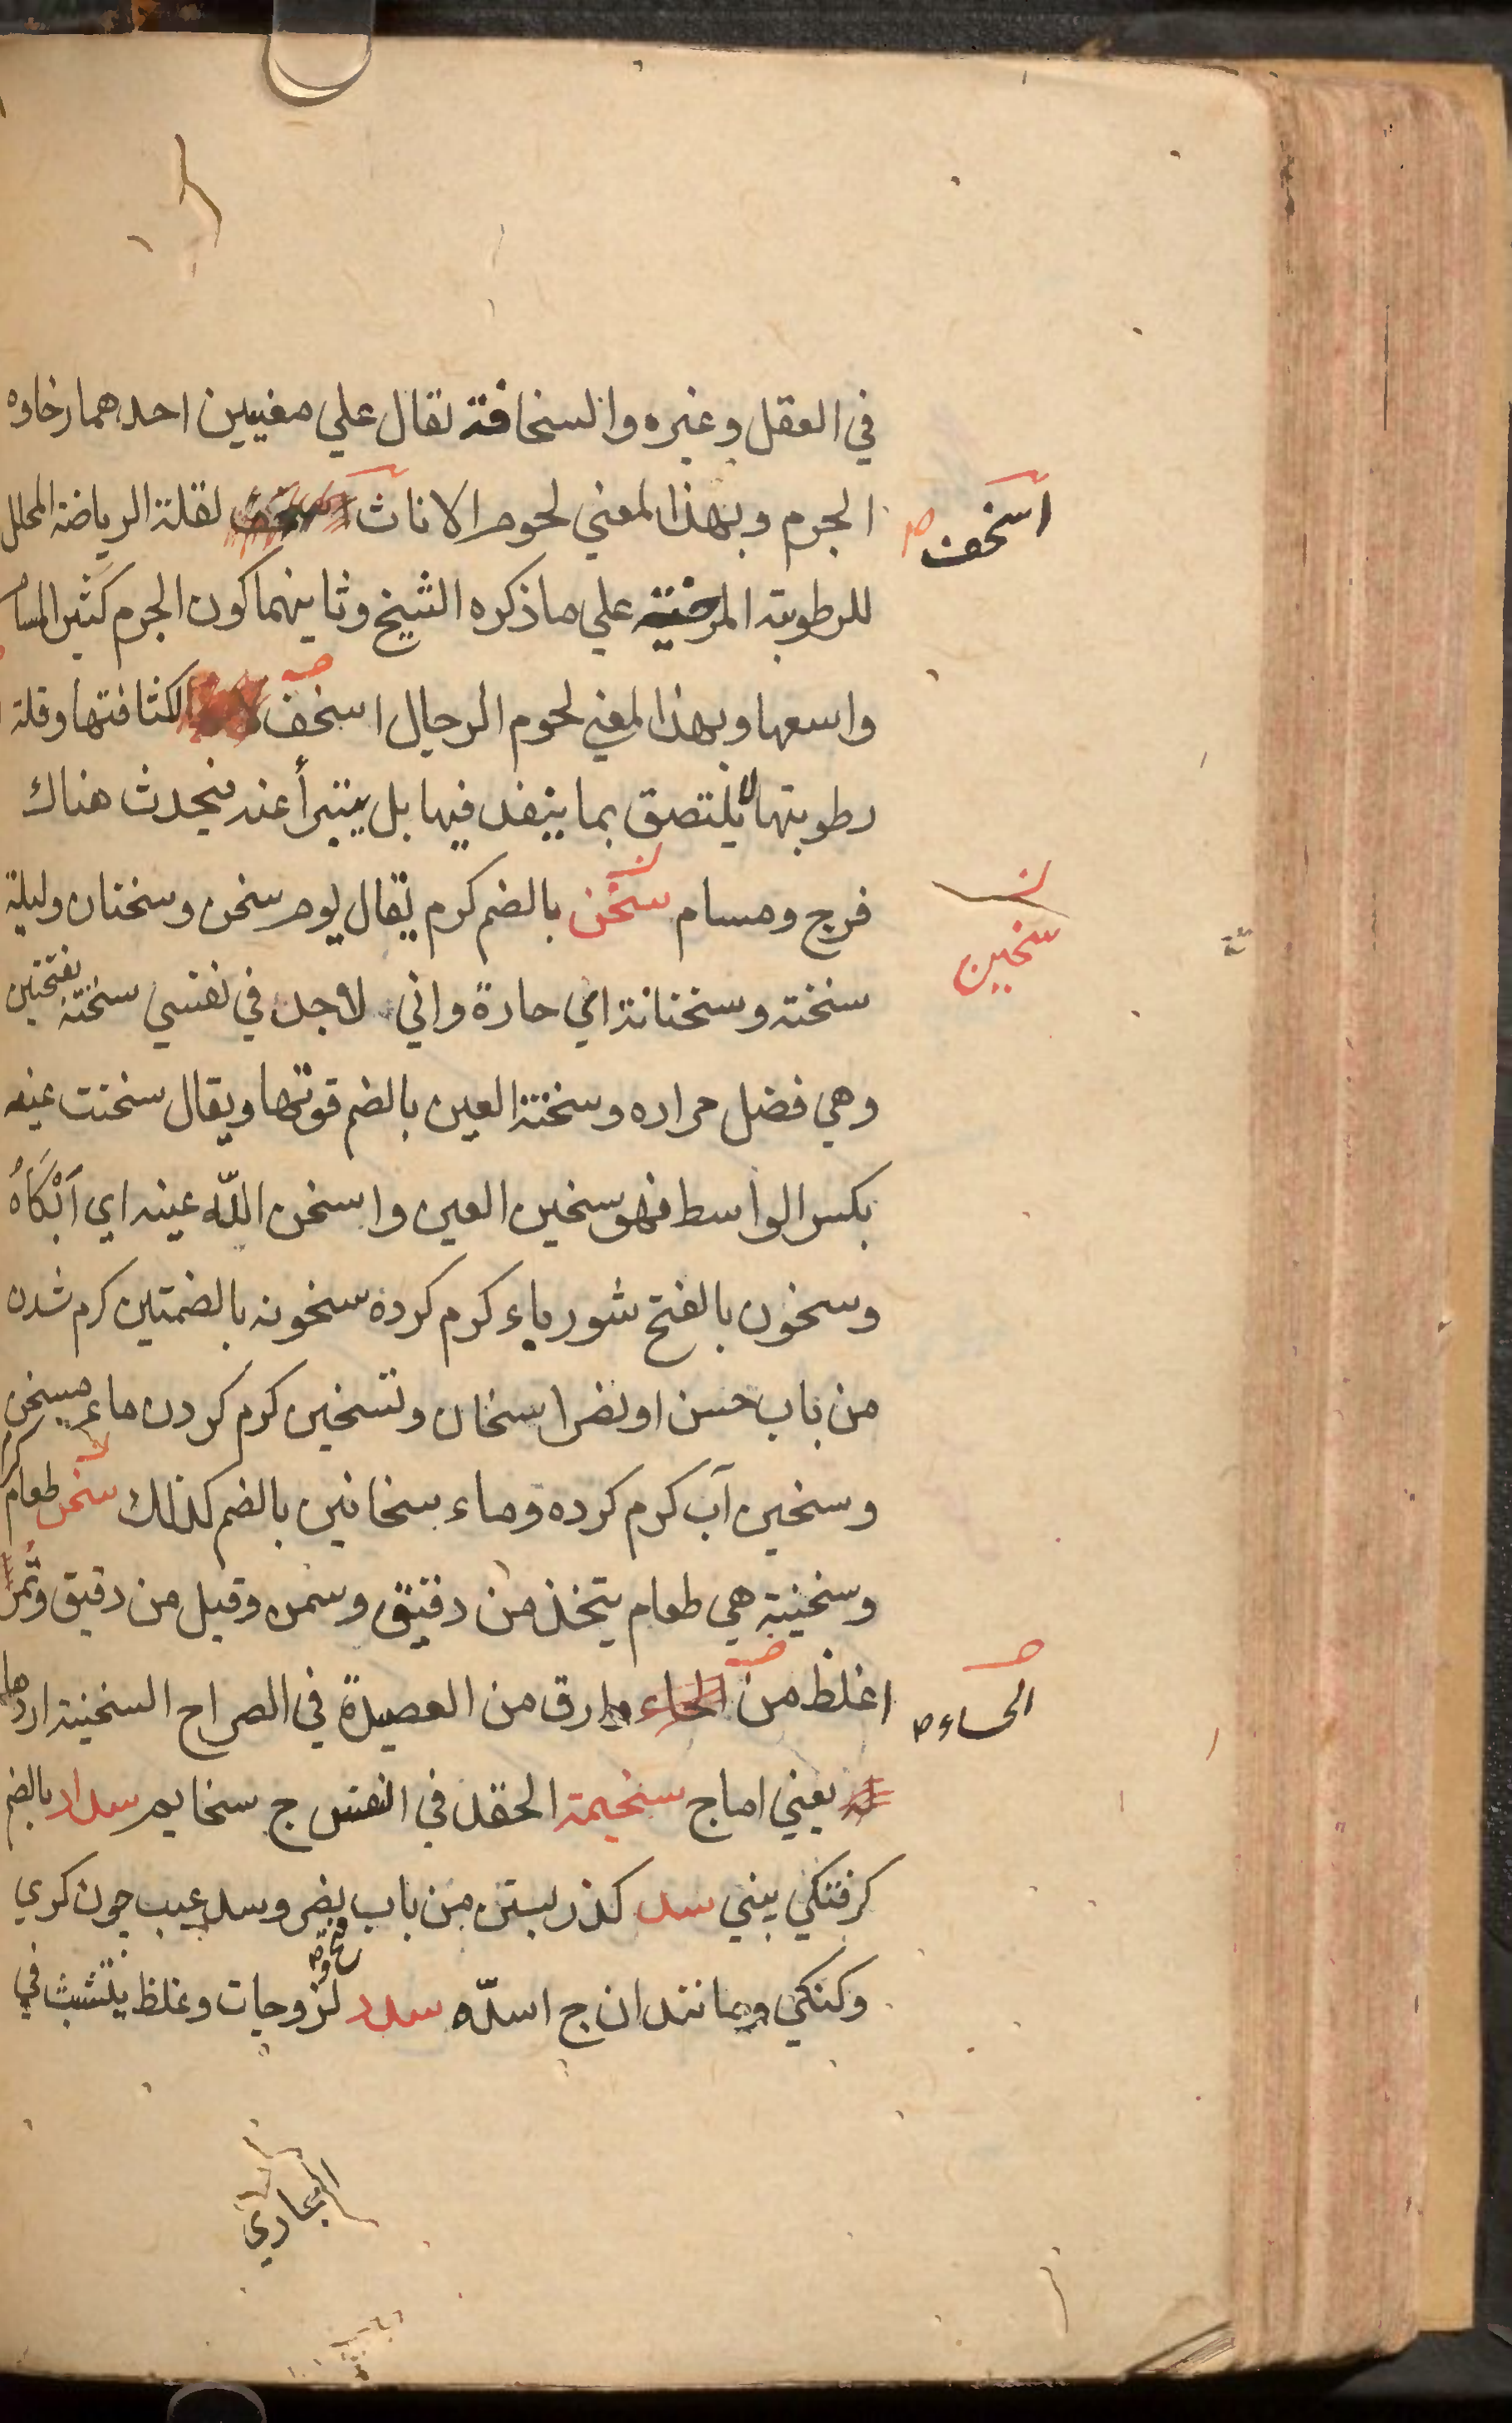 في العقل وغيره والسخافة تقال علي معنيين احدهما رخاوه
الجرم وبهذا المعني لحوم الاناث لقلة الرياضة المحلل
اسخف صح
للرطوبة المرخية علي ما ذكره الشيخ وثانيهما كون الجرم كثير المسا
واسعها وبهذا المعني لحوم الرجال اسخف لكثافتها وقلة
رطوبتها لا يلتصق بما ينفد فيها بل يتبرأ عنه فيحدث هناك
فرج ومسام سخن بالضم كرم يقال يوم سخن وسخنان وليلة
سخين
سخنة وسخنانة اي حارة واني لاجد في نفسي سخنة بفتحتين
وهي فضل حراره وسخنة العين بالضم قوتها ويقال سخنت عينه
بكسر الواسط فهو سخين العين واسخن اللّه عينه اي اَبْكَاهُ
وسخون بالفتح شورباء كرم كرده سخونه بالضمتين كرم شدن
من باب حسن او نصر اسخان وتسخين كرم كردن ماء مسخن
وسخين آب كرم كرده وماء سخانين بالضم كذلك سخن طعام
وسخينة هي طعام يتخذ من دقيق وسمن وقيل من دقيق وتمر
اغلظ من وارق من العصيدة في الصراح السخينة اردها
الحساء صح
يعني اماج سخيمة الحقد في النفس ج سخايم سداد بالضم
كرفتكي بيني سد كذر بستن من باب نصر وسد عيب چون كري
وكنكي ومانند ان ج اسدّه سدد لزوجات وغلظ يتشبث في
المجاري